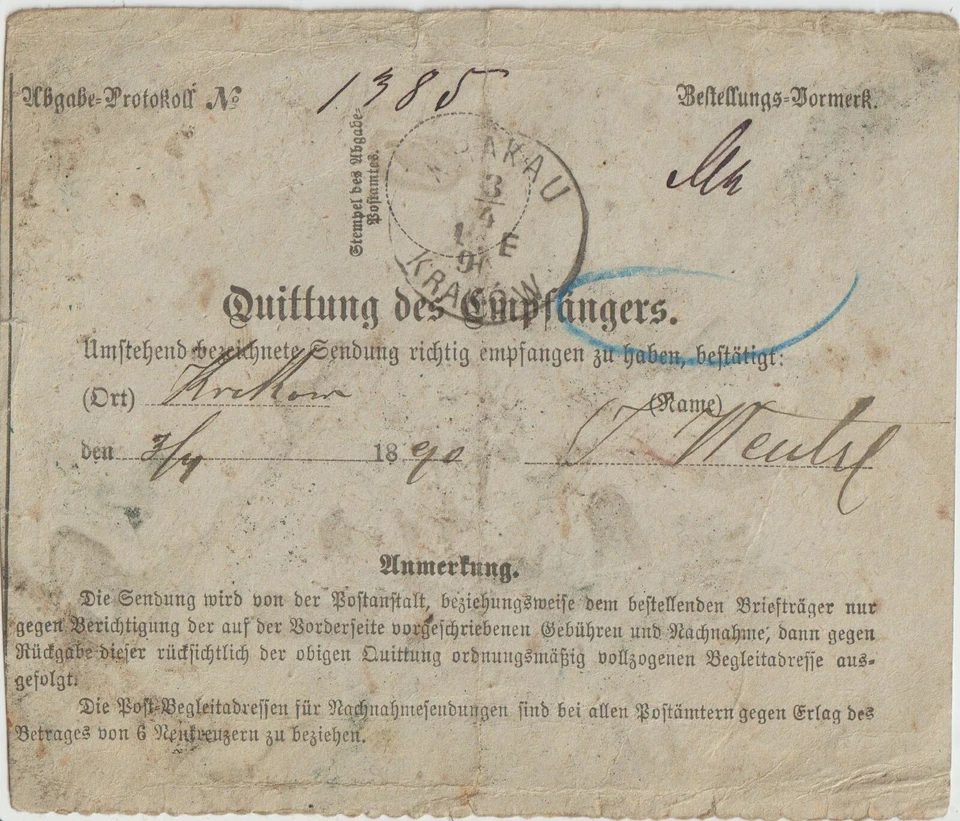 Abgabe-Protokoll № 1385
Bestellungs-Vormerk.
Stempel des Abgabe-
Postamtes.
KRAKAU
3
4
E
KRAKÓW
Quittung des Empfängers.
Umstehend bezeichnete Sendung richtig empfangen zu haben, bestätigt:
(Ort) Krakow (Name)
den 3/4 1890
Anmerkung.
Die Sendung wird von der Postanstalt, beziehungsweise dem bestellenden Briefträger nur
gegen Berichtigung der auf der Vorderseite vorgeschriebenen Gebühren und Nachnahme, dann gegen
Rückgabe dieser rücksichtlich der obigen Quittung ordnungsmäßig vollzogenen Begleitadresse aus-
gefolgt.
Die Post-Begleitadressen für Nachnahmesendungen sind bei allen Postämtern gegen Erlag des
Betrages von 6 Neukreuzern zu beziehen.